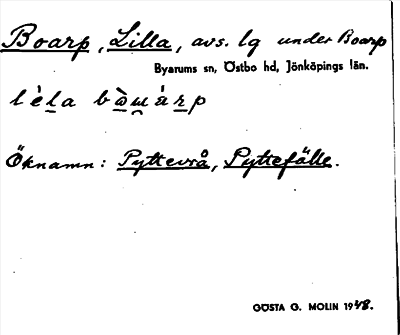 Boarp, Lilla, avs. lg under Boarp
Byarums sn, Östbo hd, Jönköpings län.
lèla bòu̯árp
Öknamn: Pyttevrå, Pyttefälle.
GÖSTA G. MOLIN 19